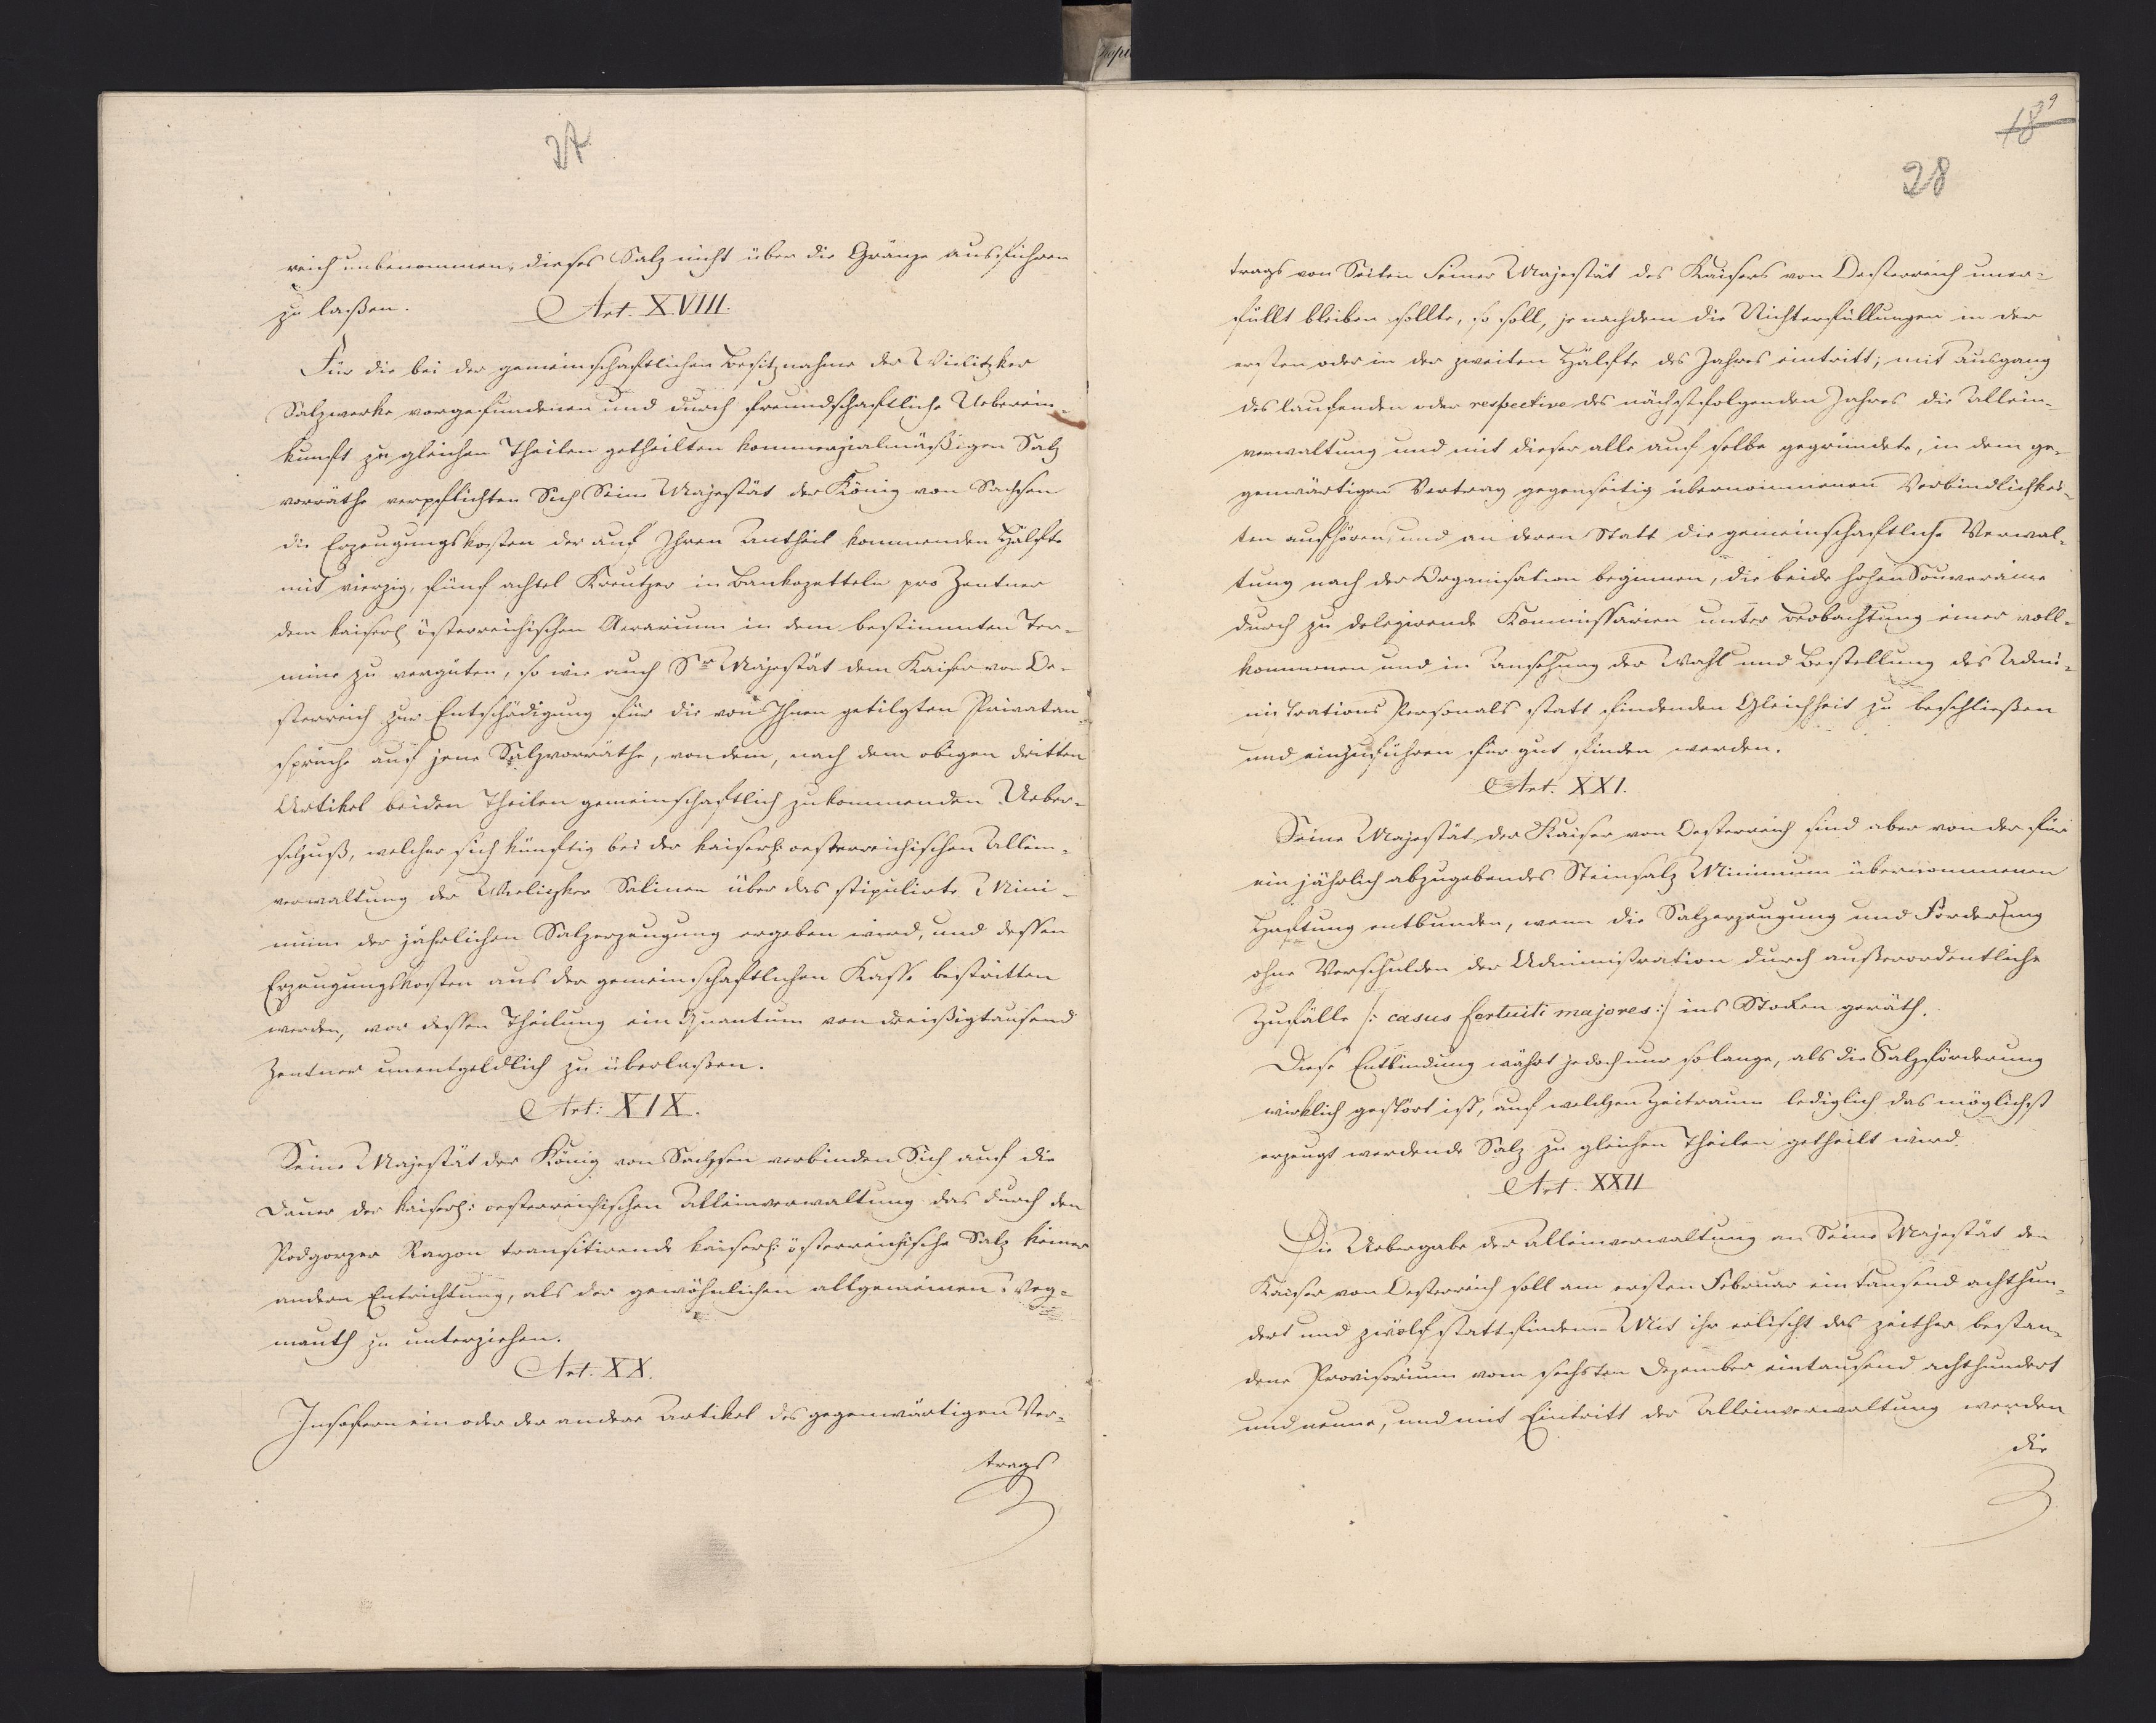 27
reich unbenommen, dieses Salz nicht über die Gränze ausführen
zu laßen.
Art. XVIII.
Für die bei der gemeinschaftlichen Besitznahme der Wielitzker
Salzwerke vorgefundenen und durch freundschaftliche Ueberein-
kunft zu gleichen Theilen getheilten kommerzialmäßigen Salz
vorräthe verpflichten Sich Seine Majestät der König von Sachsen
die Erzeugungskosten der auf Ihren Antheil kommenden Hälfte
mit vierzig, fünf achtel Kreutzer in Bankozetteln pro Zentner
dem kaiserl österreichischen Aerarium in dem bestimmten Ter-
mine zu vergüten, so wie auch Sr Majestät dem Kaiser von Oe-
sterreich zur Entschädigung für die von Ihnen getilgten Privatan-
sprüche auf jene Salzvorräthe, von dem, nach dem obigen dritten
Artikel beiden Theilen gemeinschaftlich zukommenden Ueber-
schuß, welcher sich künftig bei der kaiserl: oesterreichischen Allein-
verwaltung der Wieliczker Salinen über das stipulirte Mini-
mum der jährlichen Salzerzeugung ergeben wird, und dessen
Erzeugungskosten aus der gemeinschaftlichen Kasse bestritten
werden, vor dessen Theilung ein Quantum von dreißigtausend
Zentner unentgeldlich zu überlaßen.
Art: XIX.
Seine Majestät der König von Sachsen verbinden Sich auf die
Dauer der kaiserl: oesterreichischen Alleinverwaltung das durch den
Podgorzer Rayon transitirende kaiserl: österreichische Salz keiner
andern Entrichtung, als der gewöhnlichen allgemeinen Weg-
mauth zu unterziehen.
Art. XX.
Insofern ein oder der andere Artikel des gegenwärtigen Ver-
trags
18
9
28
trags von Seiten Seiner Majestät des Kaisers von Oesterreich uner-
füllt bleiben sollte, so soll, je nachdem die Nichterfüllungen in der
ersten oder in der zweiten Hälfte des Jahres eintritt, mit Ausgang
des laufenden oder respective des nächstfolgenden Jahres die Allein-
verwaltung und mit dieser alle auf selbe gegründete, in dem ge-
genwärtigen Vertrag gegenseitig übernommenen Verbindlichkei-
ten aufhören, und an deren Statt die gemeinschaftliche Verwal-
tung nach der Organisation beginnen, die beide hohen Souveraine
durch zu delegirende Kommissarien unter Beobachtung einer voll-
kommenen und in Ansehung der Wahl und Bestellung des Admi-
nistrations Personals statt findenden Gleichheit zu beschließen
und einzuführen für gut finden werden.
Art. XXI.
Seine Majestät der Kaiser von Oesterreich sind aber von der für
ein jährlich abzugebendes Steinsalz Minimum übernommenen
Haftung entbunden, wenn die Salzerzeugung und Förderung
ohne Verschulden der Administration durch außerordentliche
Zufälle /: casus fortuiti majores :/ ins Stocken geräth.
Diese Entbindung währt jedoch nur so lange, als die Salzförderung
wirklich gestört ist, auf welchen Zeitraum lediglich das möglichst
erzeugt werdende Salz zu gleichen Theilen getheilt wird.
Art. XXII
Die Uebergabe der Alleinverwaltung an Seine Majestät den
Kaiser von Oesterreich soll am ersten Februar ein tausend achthun-
dert und zwölf statt finden. Mit ihr erlischt das zeither bestan-
dene Provisorium vom sechsten Dezember eintausend achthundert
und neune, und mit Eintritt der Alleinverwaltung werden
die